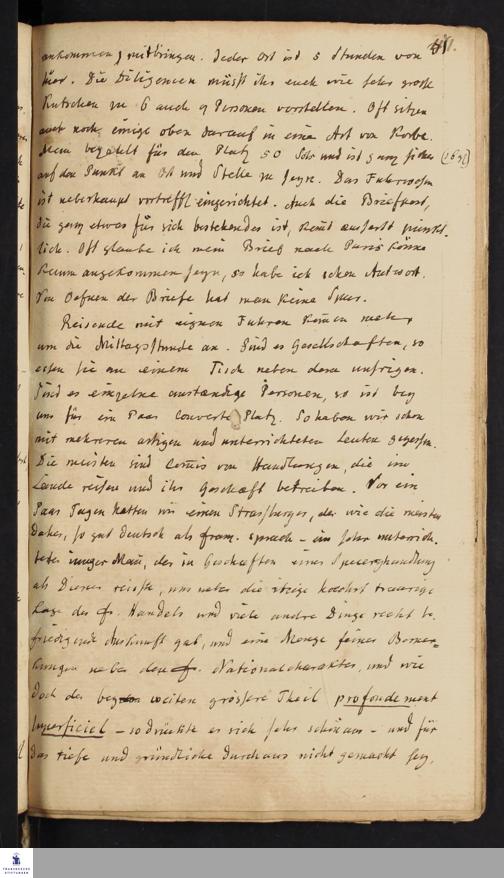 ankommen, mitbringen. Jeder Ort ist 5 Stunden von
hier. Die Diligencen müsst ihr euch wie sehr große
Kutschen zu 6 auch 9 Personen vorstellen. Oft sitzen
auch noch einige oben darauf in einer Art von Korbe.
Man bezahlt für den Platz 50 Sols und ist ganz sicher
auf den Punkt an Ort und Stelle zu seyn. Das Fuhrwesen
ist ueberhaupt vortreffl. eingerichtet. Auch die Briefpost,
die ganz etwas für sich bestehendes ist, kom̄t aeusserst pünkt-
lich. Oft glaube ich mein Brief nach Paris könne
kaum angekommen seyn, so habe ich schon Antwort.
Von Oefnen der Briefe hat man keine Spur.
Reisende mit eignen Fuhren kom̄en meist
um die Mittagsstunde an. Sind es Gesellschaften, so
essen sie an einem Tisch neben dem unsrigen.
Sind es einzelne anstaendige Personen, so ist bey
uns für ein Paar Couverte Platz. So haben wir schon
mit mehreren artigen und unterrichteten Leuten gegessen.
Die meisten sind Com̄is von Handlungen, die im
Lande reisen und ihr Geschaeft betreiben. Vor ein
Paar Tagen hatten wir einen Strassburger, der wie die meisten
daher, so gut deutsch als franz. sprach - ein sehr unterrich-
teter junger Man̄, der in Geschaeften einer Specereyhandlung
als Diener reisste, uns ueber die itzige hoechst traurige
Lage des fr. Handels und viele andre Dinge recht be-
friedigende Auskunft gab, und eine Menge feiner Bemer-
kungen ueber den fr. Nationalcharakter, und wie
doch der bey weiten grössere Theil profondement
superficiel - so drückte er sich sehr schön aus - und für
das tiefe und gründliche durchaus nicht gemacht sey,